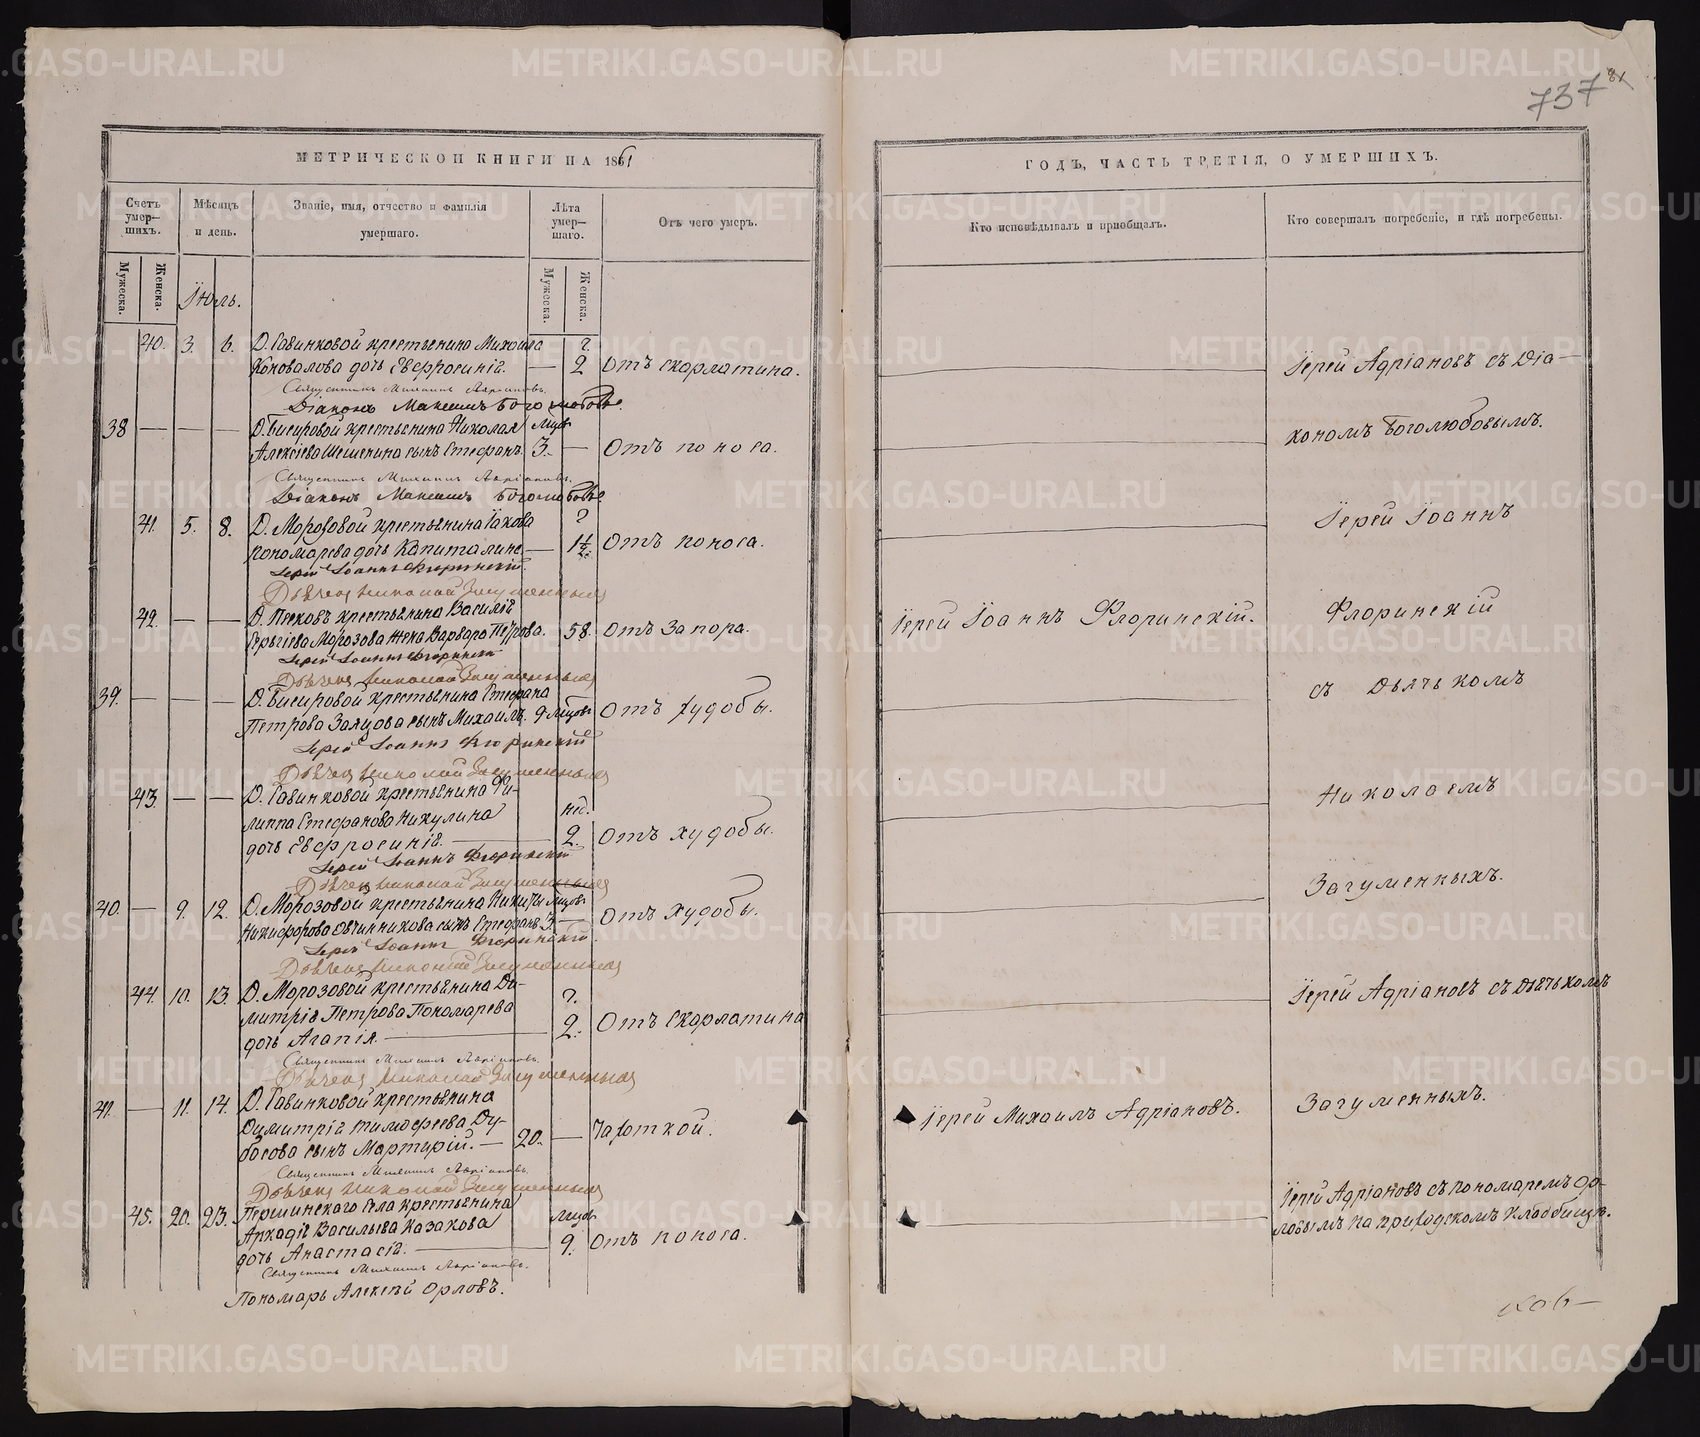 737
81
МЕТРИЧЕСКОЙ КНИГИ НА 1861
ГОДЪ, ЧАСТЬ ТРЕТІЯ, О УМЕРШИХЪ.
Счетъ умер-шихъ.
Мѣсяцъ и день.
Званіе, имя, отчество и фамилія умершаго.
Лѣта умер-шаго.
Отъ чего умеръ.
Кто исповѣдывалъ и пріобщалъ.
Кто совершалъ погребеніе, и гдѣ погребены.
Мужеска.
Женска.
Мужеска.
Женска.
Іюль.
40. 3. 6. Д. Гавинковой крестьянина Михаила
Коновалова дочь Евфросинія. — 2 Отъ скарлатина.
Священникъ Михаилъ Адріановъ.
Діаконъ Максимъ Боголюбовъ.
Іерей Адріановъ съ Діа-
38 — — — Д. Бисировой крестьянина Николая мцов
Алексіева сынъ Стефанъ. 3. — Отъ поноса.
Священникъ Михаилъ Адріановъ.
Діаконъ Максимъ Боголюбовъ
кономъ Боголюбовымъ.
41. 5. 8. Д. Морозовой крестьянина Іакова
Пономарева дочь Капиталина — 1½ Отъ поноса.
Іерей Іоаннъ Флоринскій.
Дьячекъ Николай Загуменныхъ
Іерей Іоаннъ
42. — — Д. Пысковъ крестьянина Василія
Сергіева Морозова жена Варвара Петрова. 58. Отъ Запора.
Іерей Іоаннъ Флоринскій
Дьячекъ Николай Загуменныхъ
Іерей Іоаннъ Флоринскій.
Флоринскій
39. — — — Д. Бисировой крестьянина Стефана
Петрова Заяцова сынъ Михаилъ. 9 мцов Отъ худобы.
Іерей Іоаннъ Флоринскій
Дьячекъ Николай Загуменныхъ
съ Дьячькомъ
43. — — Д. Гавинковой крестьянина Фи-
липпа Стефанова Никулина нед.
дочь Евфросинія. — 2. Отъ худобы.
Іерей Іоаннъ Флоринскій
Дьячекъ Николай Загуменныхъ
Николаемъ
Загуменныхъ.
40. — 9. 12. Д. Морозовой крестьянина Никиты мцов
Никифорова Овчинникова сынъ Стефанъ 3. — Отъ худобы.
Іерей Іоаннъ Флоринскій
Дьячекъ Николай Загуменныхъ
44. 10. 13. Д. Морозовой крестьянина Ди-
митрія Петрова Пономарева
дочь Агапія. — 2. Отъ Скарлатина
Священникъ Михаилъ Адріановъ.
Дьячекъ Николай Загуменныхъ
Іерей Адріановъ съ Дьячькомъ
Загуменныхъ.
41. — 11. 14. Д. Гавинковой крестьянина
Димитрія Тимофеева Ду-
босова сынъ Мартирій. — 20. — Чахоткой.
Священникъ Михаилъ Адріановъ.
Дьячекъ Николай Загуменныхъ
Іерей Михаилъ Адріановъ.
45. 20. 23. Першинскаго села крестьянина
Аркадія Васильева Казакова мцов
дочь Анастасія. — 9. Отъ поноса.
Священникъ Михаилъ Адріановъ.
Пономарь Алексѣй Орловъ.
Іерей Адріановъ съ пономаремъ Ор-
ловымъ на приходскомъ кладбищѣ.
METRIKI.GASO-URAL.RU